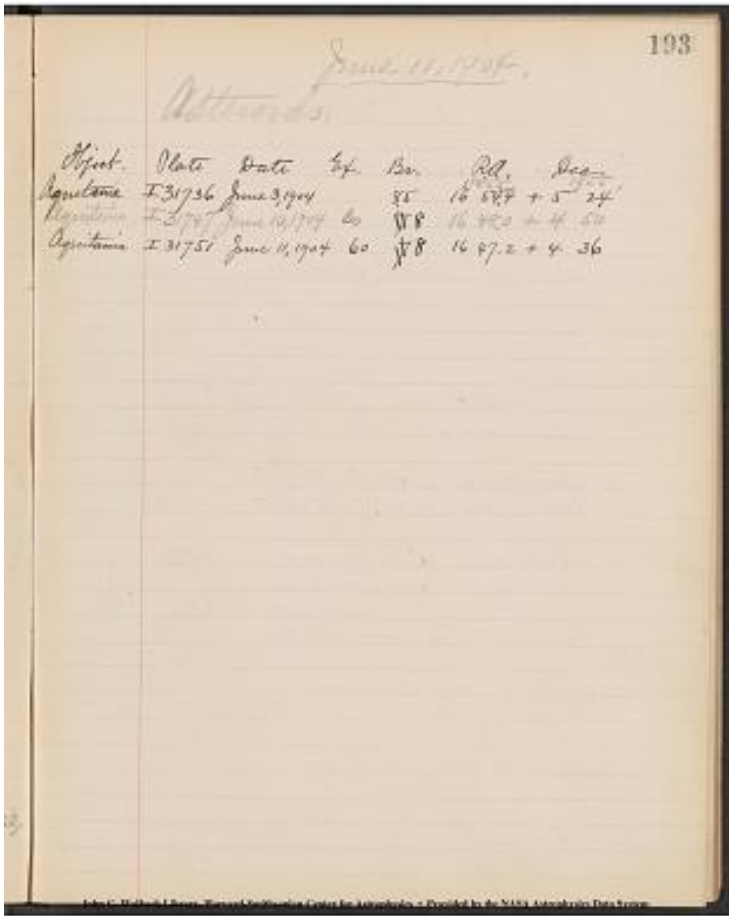 193
June 11, 1904.
Asteroids.
Object. Plate Date Ex. Br. R.A. Dec.
Aquitania I 31736 June 3, 1904 85 16 + 5 24'
Aquitania I 31747 June 10, 1904 60 8 16 48.0 + 4 50
Aquitania I 31751 June 11, 1904 60 8 16 47.2 + 4 36
John G. Wolbach Library, Harvard-Smithsonian Center for Astrophysics • Provided by the NASA Astrophysics Data System